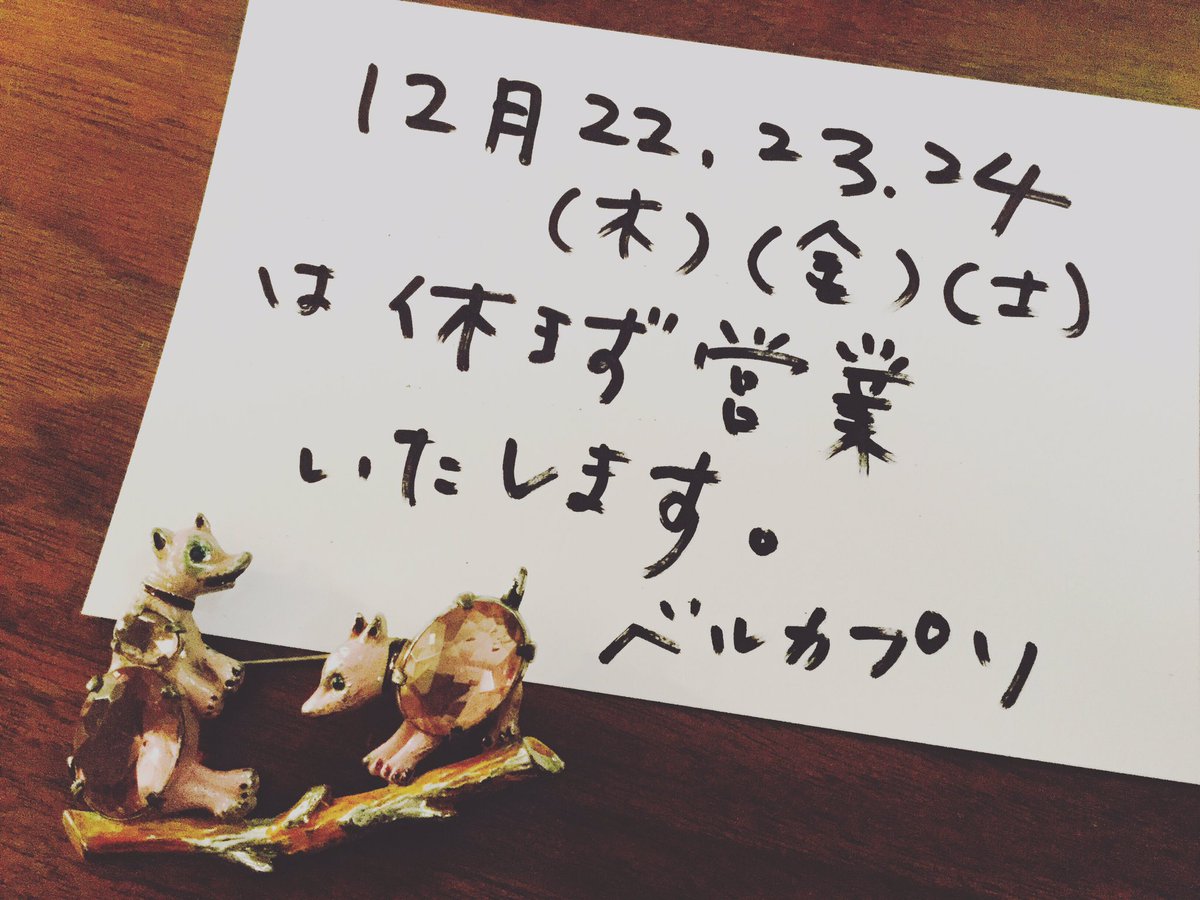 12月22.23.24
(木)(金)(土)
は休まず営業
いたします。
ベルカプリ